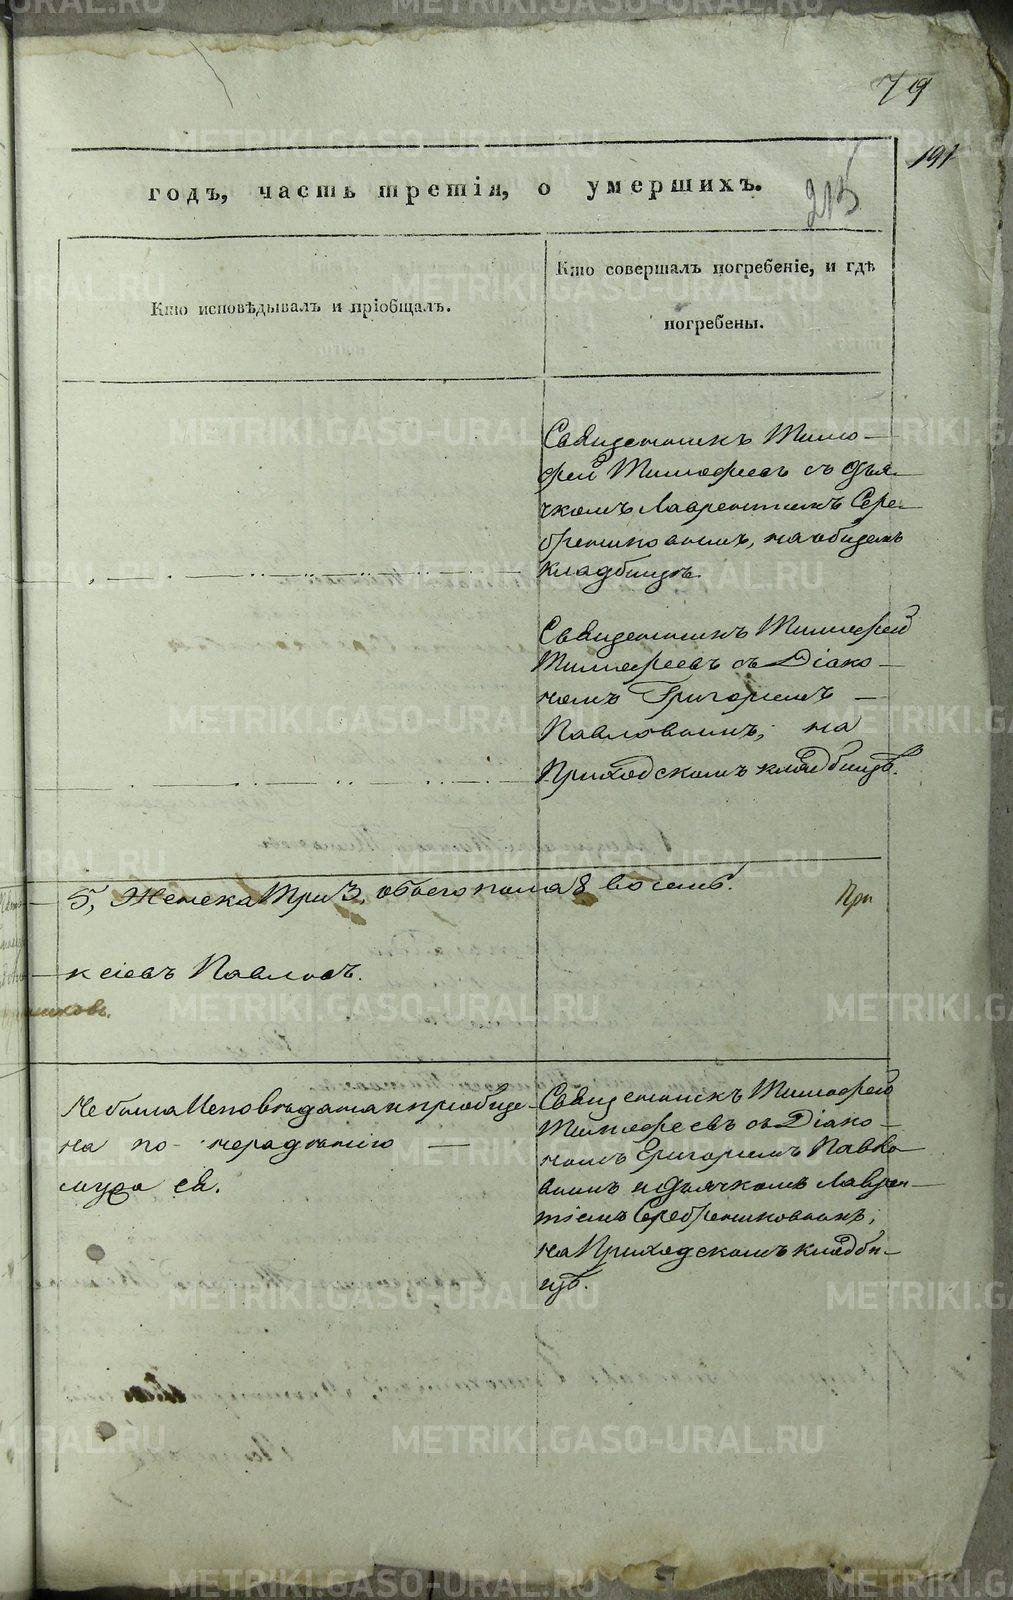 79
191
215
годъ, часть третія, о умершихъ.
Кто исповѣдывалъ и пріобщалъ.
Кто совершалъ погребеніе, и гдѣ
погребены.
Священникъ Тимо-
фей Тимофеевъ съ дья-
чкомъ Лаврентіемъ Сере-
бренниковымъ, на общемъ
кладбищѣ.
Священникъ Тимофей
Тимофеевъ съ Діако-
номъ Григоріемъ
Павловымъ, на
Приходскомъ кладбищѣ.
5, Женска Три 3, обоего пола 8 восемь.
При
ксіевъ Павловъ.
никовъ.
Не была Исповѣдана и приобще-
на по нерадѣнію
мужа ея.
Священникъ Тимофей
Тимофеевъ съ Діако-
номъ Григоріемъ Павло
вымъ и дьячкомъ Лаврен-
тіемъ Серебренниковымъ,
на Приходскомъ кладби-
щѣ.
METRIKI.GASO-URAL.RU